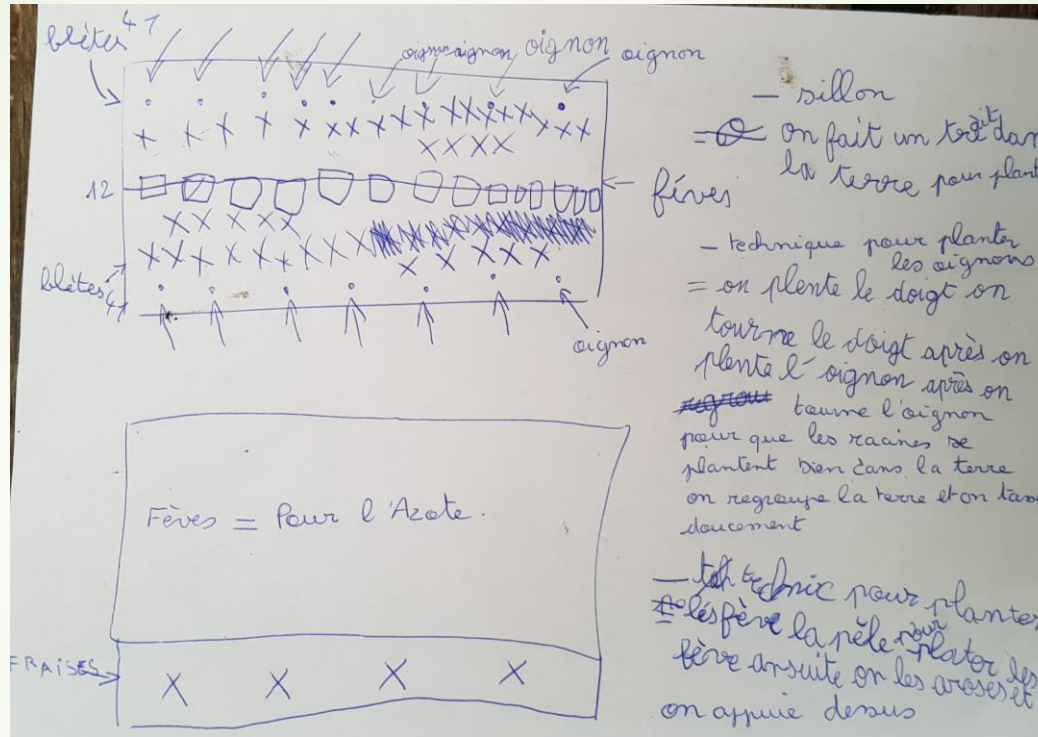 blètes 41
oignon oignon oignon oignon
12
fèves
blètes 41
oignon
Fèves = Pour l'Azote.
FRAISES
— sillon
= on fait un trait dan
la terre pour plant
— technique pour planter
les oignons
= on plente le doigt on
tourne le doigt après on
plente l'oignon après on
tourne l'oignon
pour que les racines se
plantent bien dans la terre
on regroupe la terre et on tas
doucement
— technic pour planter
les fève la pèle pour plater les
fève ansuite on les aroses et
on appuie dessus